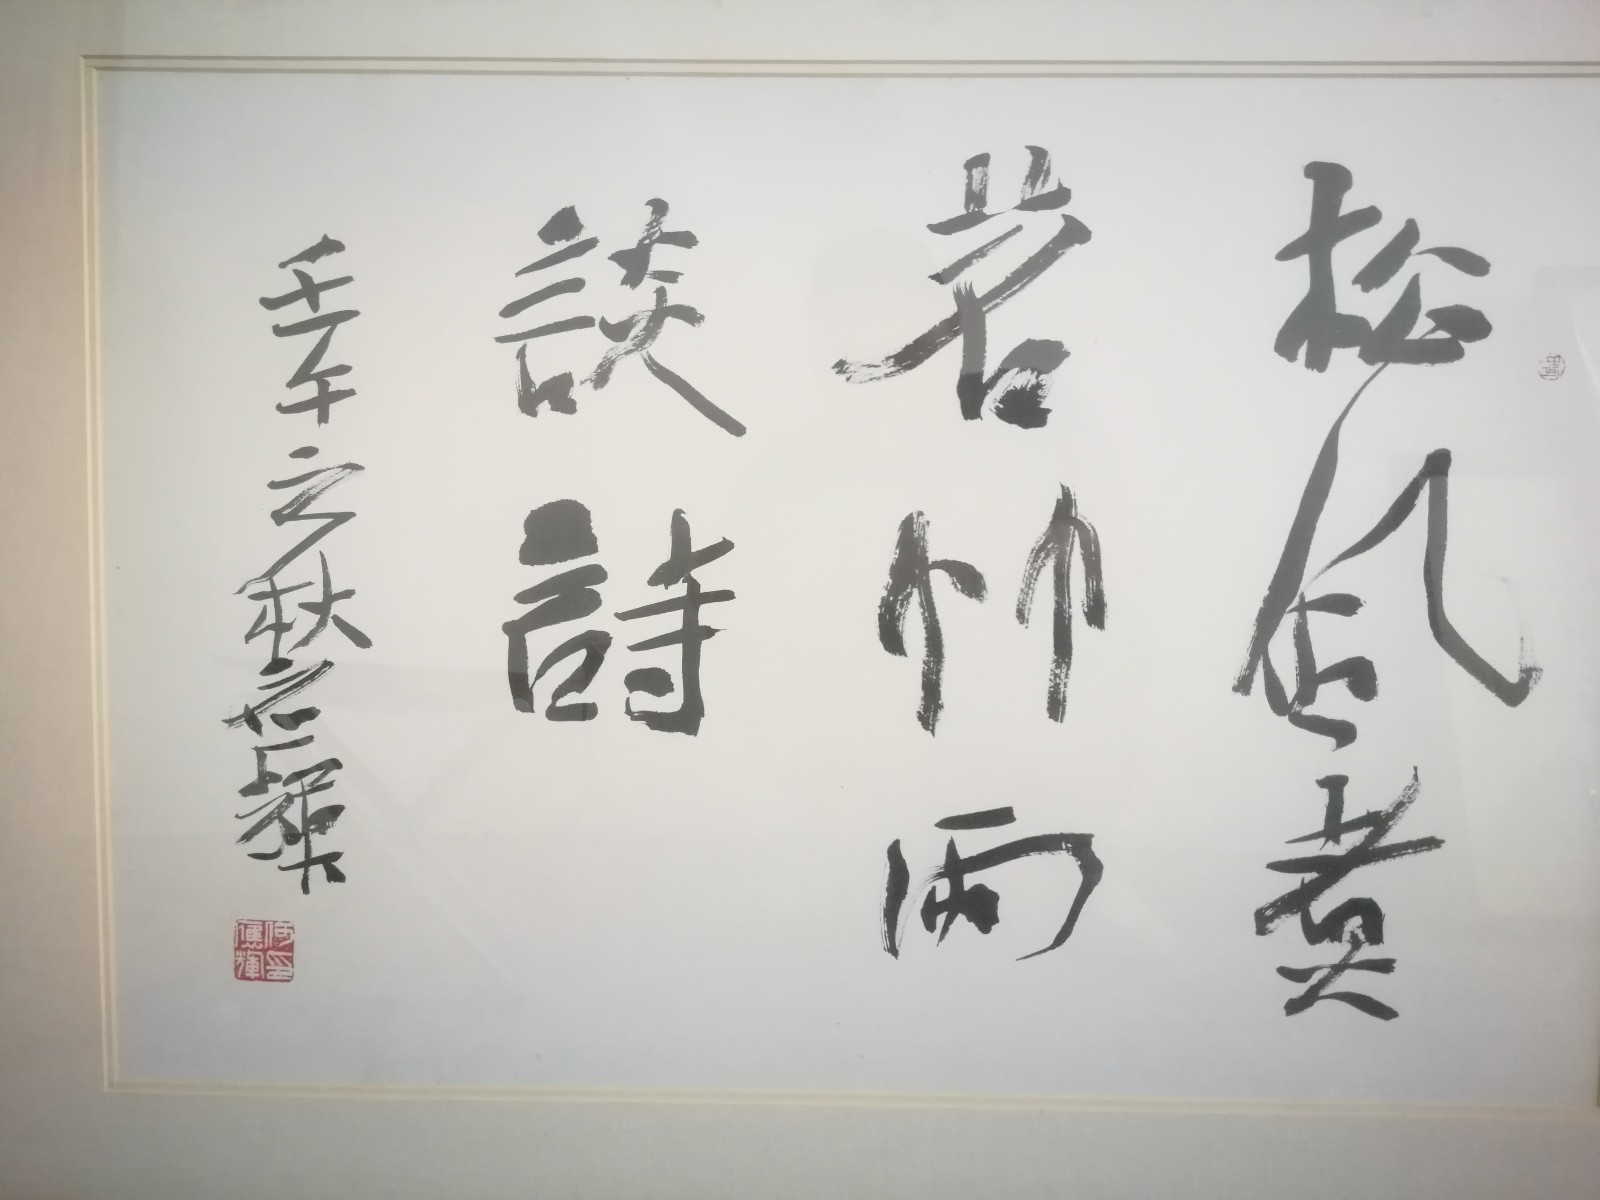 松風煮
茗竹雨
談詩
壬午之秋